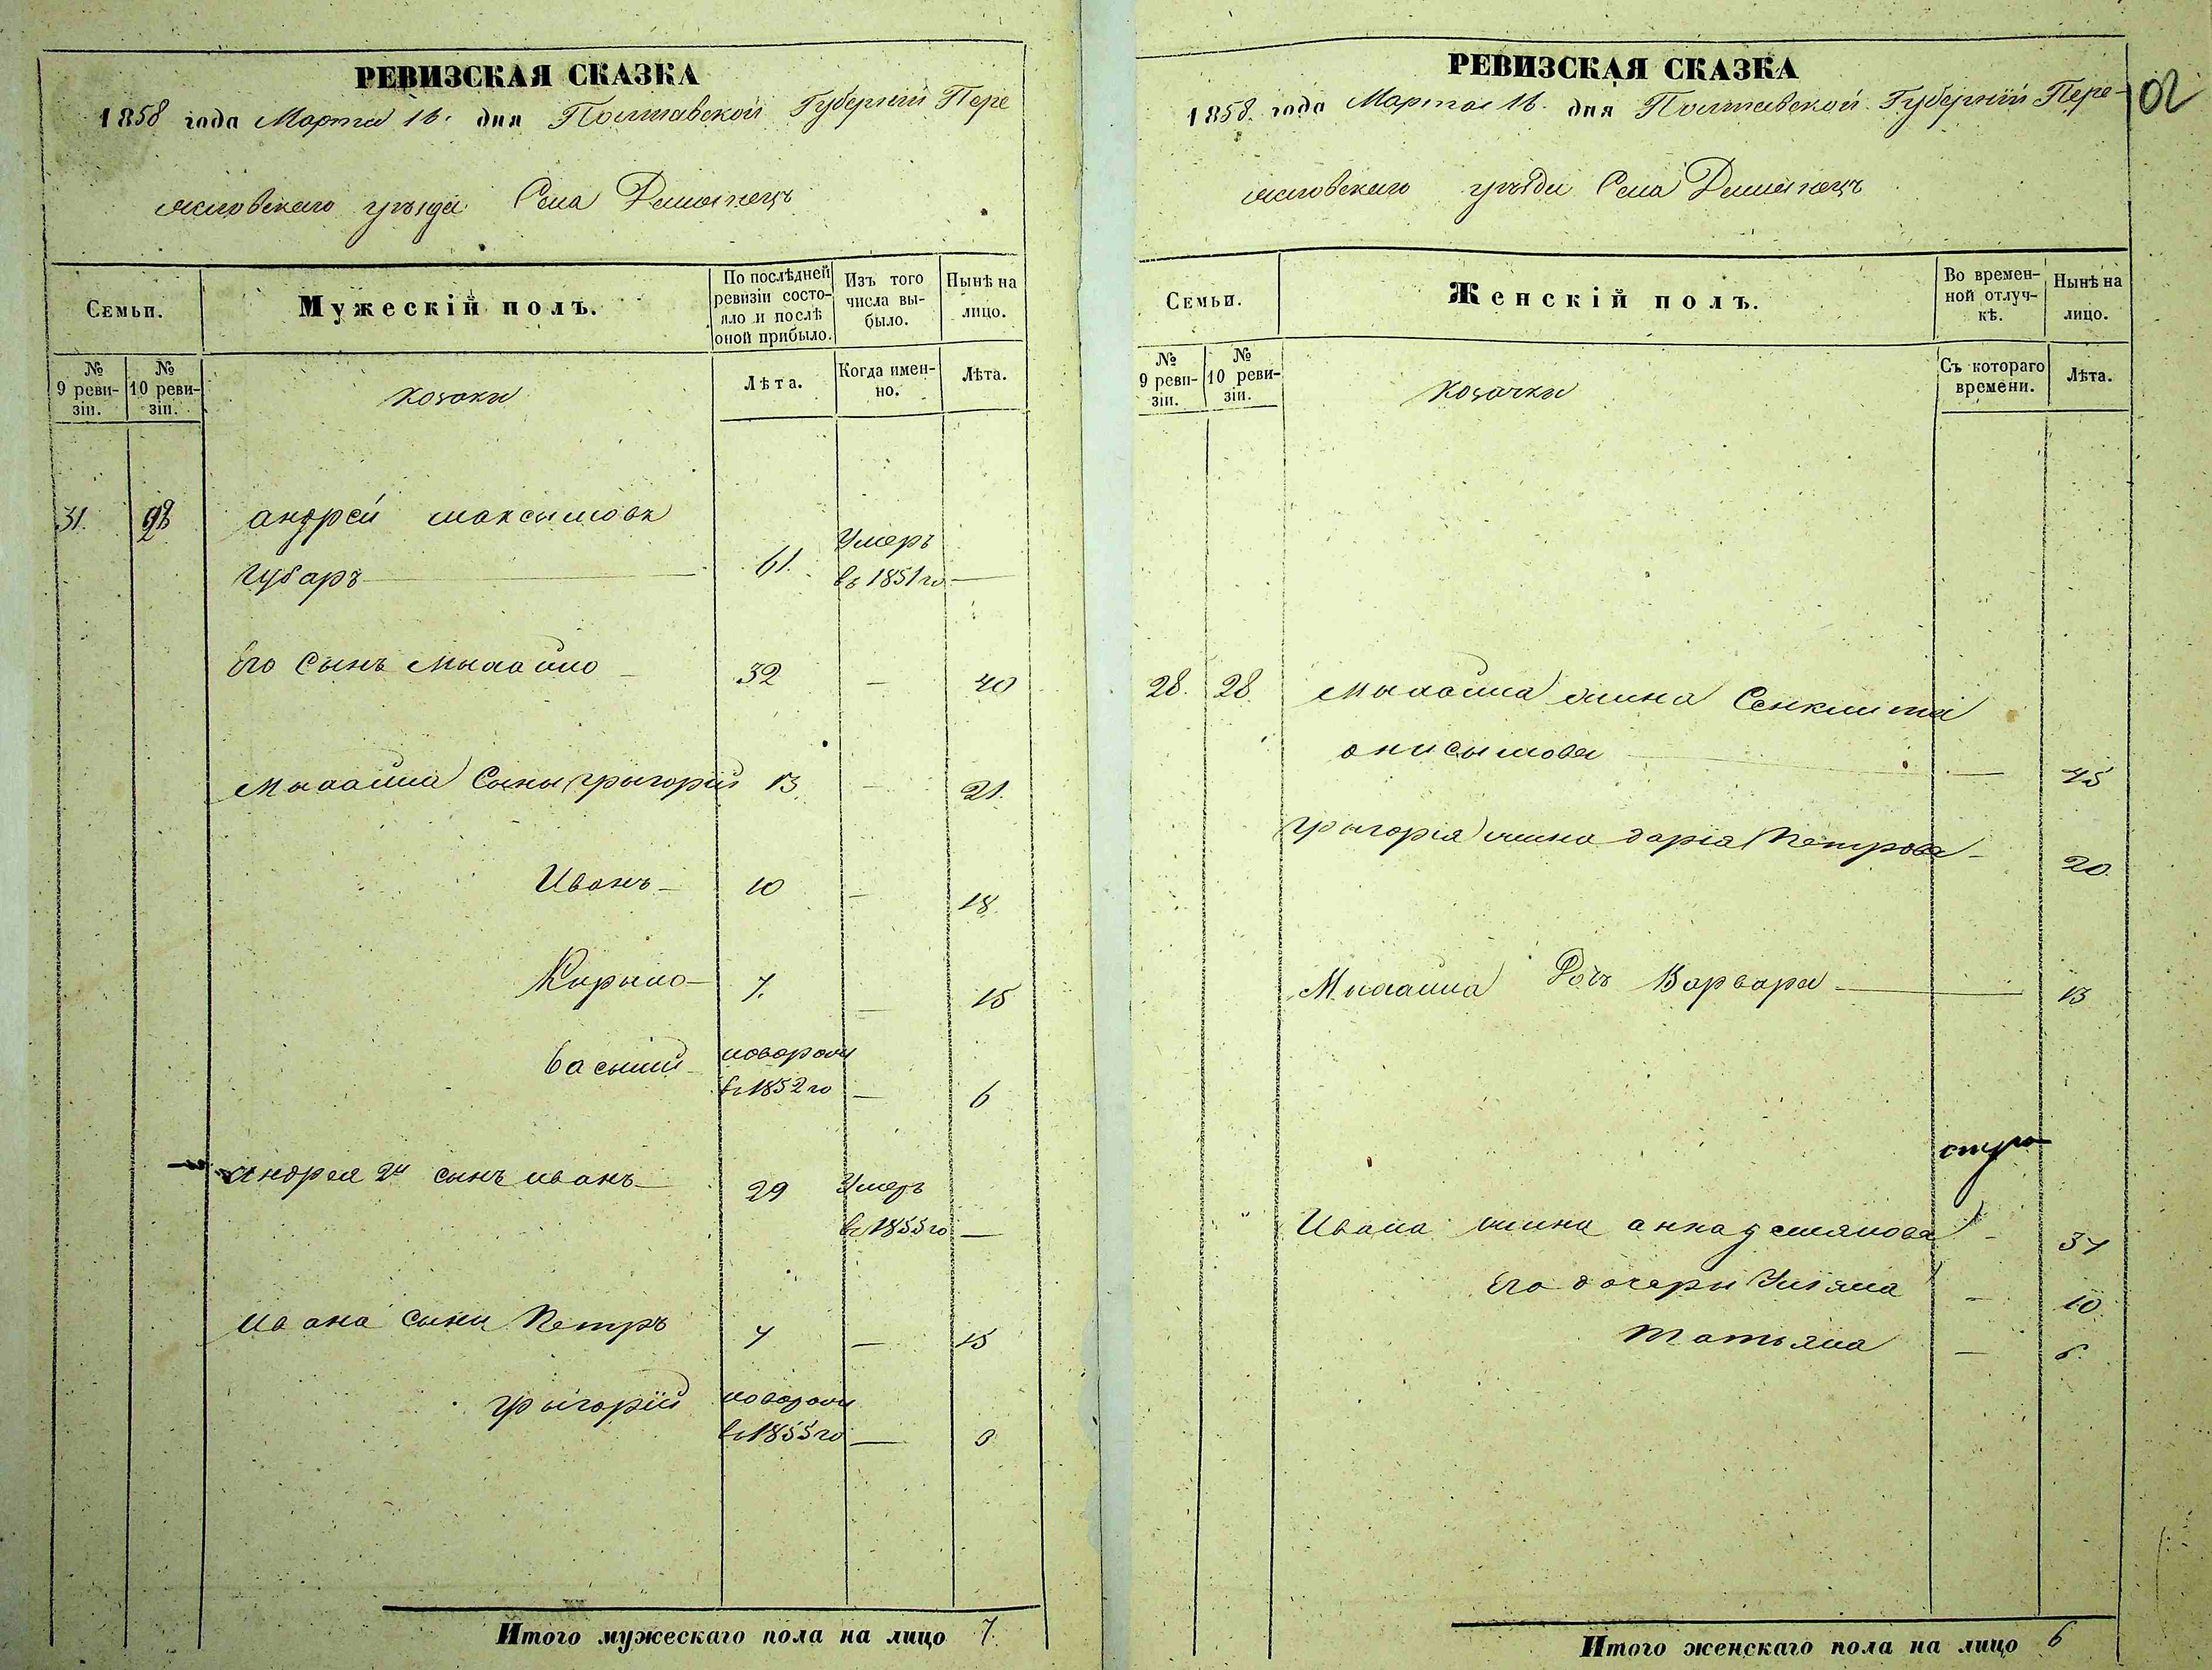 РЕВИЗСКАЯ СКАЗКА
1858 года Марта 16. дня Полтавской Губерніи Пере
яславскаго уезда Села Демьянецъ
Семьи.
Мужескій полъ.
По послѣдней ревизіи состояло и послѣ оной прибыло.
Изъ того числа выбыло.
Нынѣ на лицо.
№ 9 ревизіи.
№ 10 ревизіи.
козаки
Лѣта.
Когда именно.
Лѣта.
31. 28 андрей максымовъ
губаръ 61. Умеръ въ 1851 го —
Его Сынъ Мыхайло 32 — 40
Мыхайла Сыны григорій 13. — 21.
Иванъ 10 — 18.
Кирыло 7. — 15
василій новорожд въ 1852 го — 6
андрея 2й сынъ иванъ 29 Умеръ въ 1855 го —
ивана сыни Петръ 7 — 15
григорій новорожд въ 1855 го — 3
Итого мужескаго пола на лицо 7.
РЕВИЗСКАЯ СКАЗКА
1858. года Марта 16. дня Полтавской Губерніи Пере-
яславскаго уезда Села Демьянецъ
Семьи.
Женскій полъ.
Во временной отлучкѣ.
Нынѣ на лицо.
№ 9 ревизіи.
№ 10 ревизіи.
козачки
Съ котораго времени.
Лѣта.
28. 28 Мыхайла жина Сенклита
онисымова — 45
григорія жина дарія Петрова — 20.
Мыхайла Дочь Варвара — 13
Ивана жина анна — 37
Его дочери Уляна — 10.
Татьяна — 6.
Итого женскаго пола на лицо 6